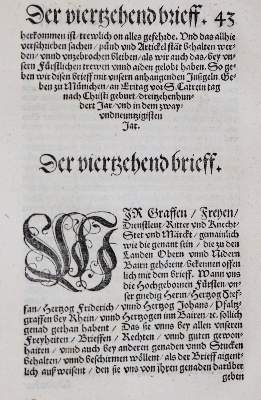 Der viertzehend brieff. 43
herkommen ist/ trewlich on alles gefehrde. Vnd das allhie
verschrieben sachen/ pünd vnd Artickel stät behalten wer-
den/ vnnd vnzebrochen bleiben/ als wir auch das/ bey vn-
sern Fürstlichen trewen vnnd aiden gelobt haben. So ge-
ben wir disen brieff mit vnsern anhangenden Insigeln. Ge-
ben zu München/ am Eritag vor S. Catrein tag
nach Christi geburt/ dreitzehenhun-
dert Jar/ vnd in dem zway
vndneuntzigisten
Jar.
Der viertzehend brieff.
WIR Graffen/ Freyen/
Dienstleut/ Ritter vnd Knecht/
Stet vnd Märckt/ gemainlich
wie die genant sein/ die zu den
Landen Obern vnnd Nidern
Bairn gehörent/ bekennen offen
lich mit dem brieff. Wann vns
die Hochgebornen Fürsten/ vn-
ser gnedig Herrn/ Hertzog Stef-
fan/ Hertzog Friderich/ vnnd Hertzog Johans/ Pfaltz-
graffen bey Rhein/ vnnd Hertzogen inn Bairen ꝛc. sollich
genad gethan habent/ Das sie vnns bey allen vnseren
Freyheiten/ Brieffen/ Rechten/ vnnd guten gewon-
haiten/ vnnd auch bey anderen genaden vnnd Stucken
behalten/ vnnd beschirmen wöllent/ als der Brieff aigent-
lich außweiset/ den sie vns von ihren genaden darüber
geben